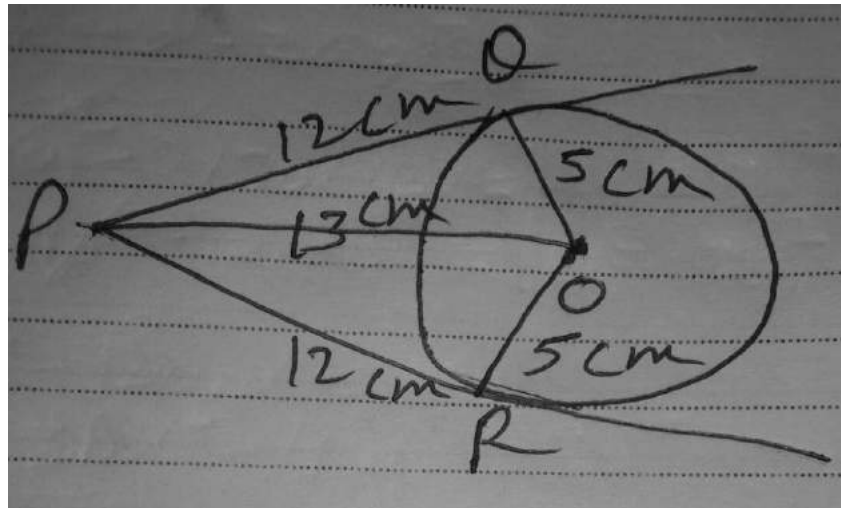 Q
12 cm
5 cm
P
13 cm
O
5 cm
12 cm
R